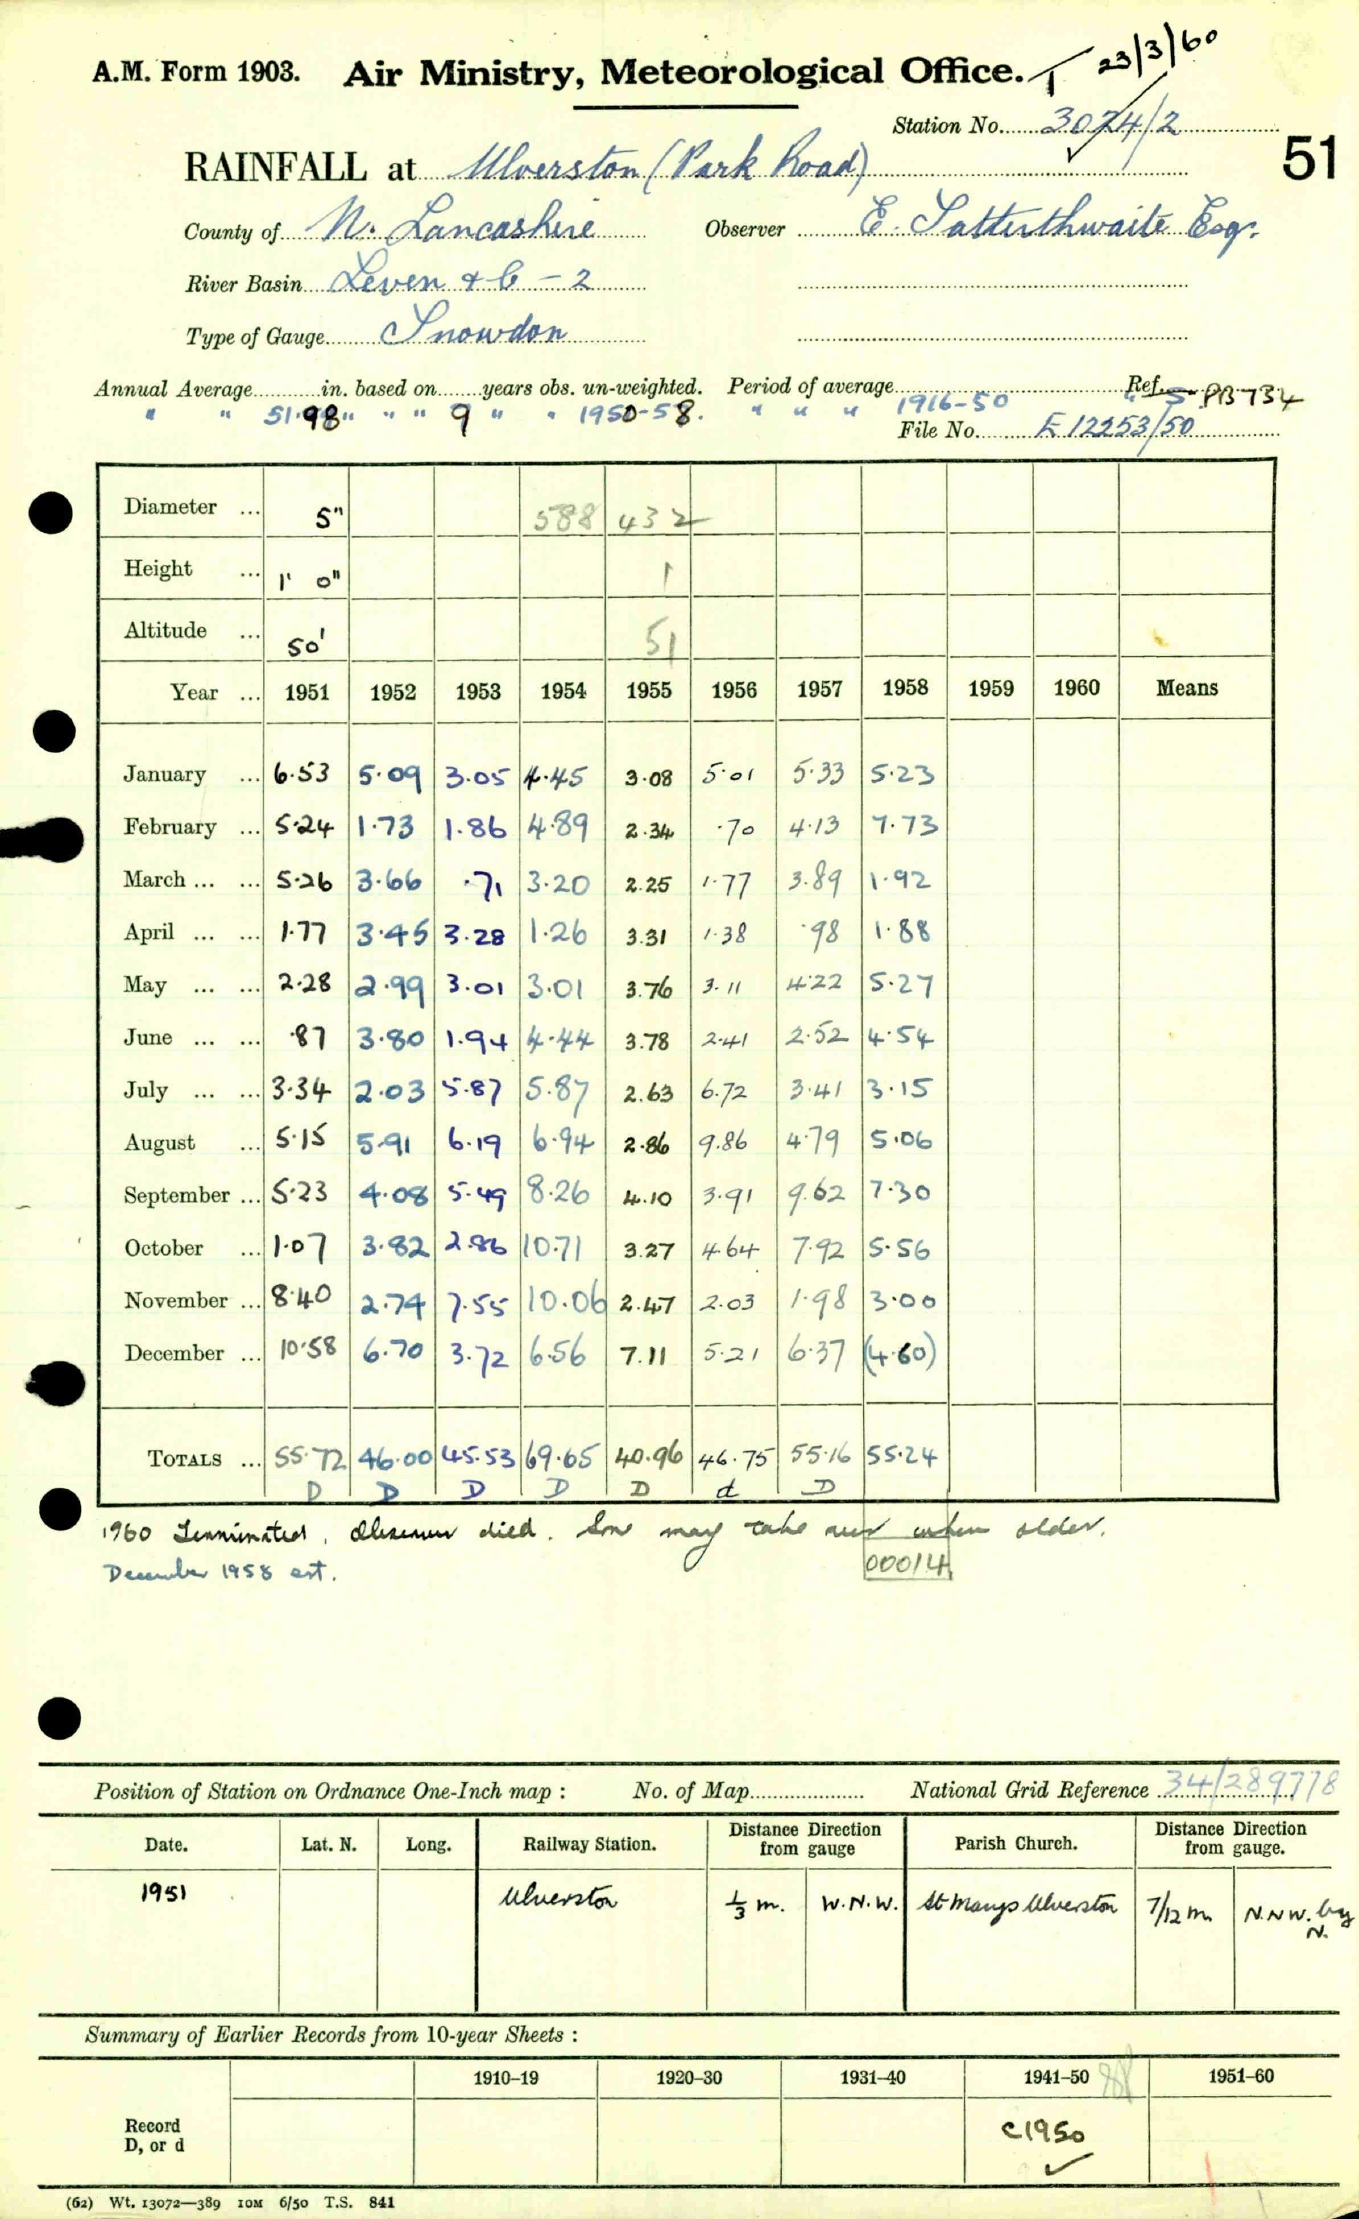 A.M. Form 1903. Air Ministry, Meteorological Office. T 23/3/60
Station No. 3074/2
51
RAINFALL at Ulverston (Park Road)
County of N. Lancashire Observer E. Satterthwaite Esqr.
River Basin Leven & C - 2
Type of Gauge Snowdon
Annual Average in. based on years obs. un-weighted. Period of average Ref.
" " 51.98 " " " 9 " " 1950-58. " " " 1916-50 " S PB 734
File No. E 12253/50
Diameter ... 5" 588 432
Height ... 1' 0" 1
Altitude ... 50' 51
Year ... 1951 1952 1953 1954 1955 1956 1957 1958 1959 1960 Means
January ... 6.53 5.09 3.05 4.45 3.08 5.01 5.33 5.23
February ... 5.24 1.73 1.86 4.89 2.34 .70 4.13 7.73
March ... ... 5.26 3.66 .71 3.20 2.25 1.77 3.89 1.92
April ... ... 1.77 3.45 3.28 1.26 3.31 1.38 .98 1.88
May ... ... 2.28 2.99 3.01 3.01 3.76 3.11 4.22 5.27
June ... ... .87 3.80 1.94 4.44 3.78 2.41 2.52 4.54
July ... ... 3.34 2.03 5.87 5.87 2.63 6.72 3.41 3.15
August ... 5.15 5.91 6.19 6.94 2.86 9.86 4.79 5.06
September ... 5.23 4.08 5.49 8.26 4.10 3.91 9.62 7.30
October ... 1.07 3.82 2.86 10.71 3.27 4.64 7.92 5.56
November ... 8.40 2.74 7.55 10.06 2.47 2.03 1.98 3.00
December ... 10.58 6.70 3.72 6.56 7.11 5.21 6.37 (4.60)
TOTALS ... 55.72 46.00 45.53 69.65 40.96 46.75 55.16 55.24
D D D D D d D
1960 Terminated, Observer died. Son may take over when older.
December 1958 est. 00014
Position of Station on Ordnance One-Inch map : No. of Map National Grid Reference 34/289778
Date. Lat. N. Long. Railway Station. Distance Direction from gauge Parish Church. Distance Direction from gauge.
1951 Ulverston 1/3 m. W.N.W. St Marys Ulverston 7/12 m. N.N.W. by N.
Summary of Earlier Records from 10-year Sheets :
1910–19 1920–30 1931–40 1941–50 1951–60
Record D, or d c1950
(62) Wt. 13072—389 10M 6/50 T.S. 841